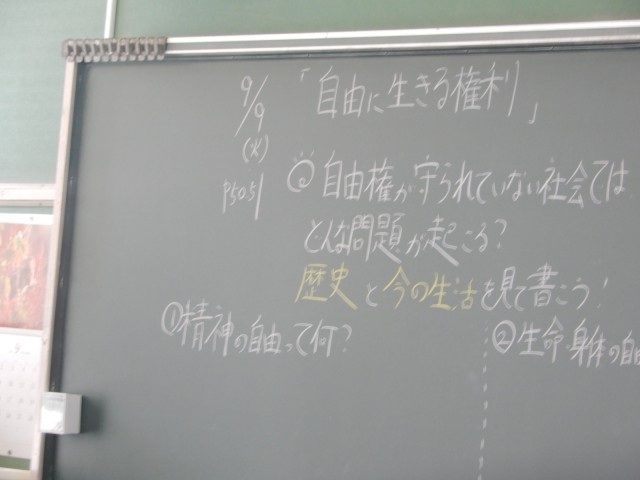 9/9
(火)
P50.51
「自由に生きる権利」
◎自由権が守られていない社会では
どんな問題が起こる?
歴史と今の生活を見て書こう!
①精神の自由って何?
②生命・身体の自由